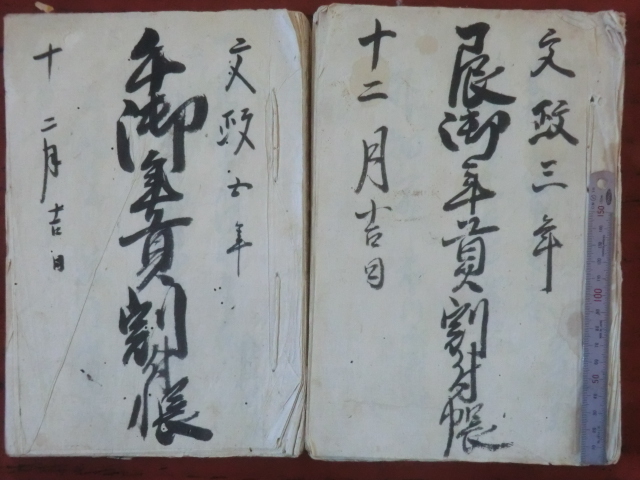 文政三年
辰御年貢割付帳
十二月吉日
文政五年
午御年貢割付帳
十二月吉日
150
100
50